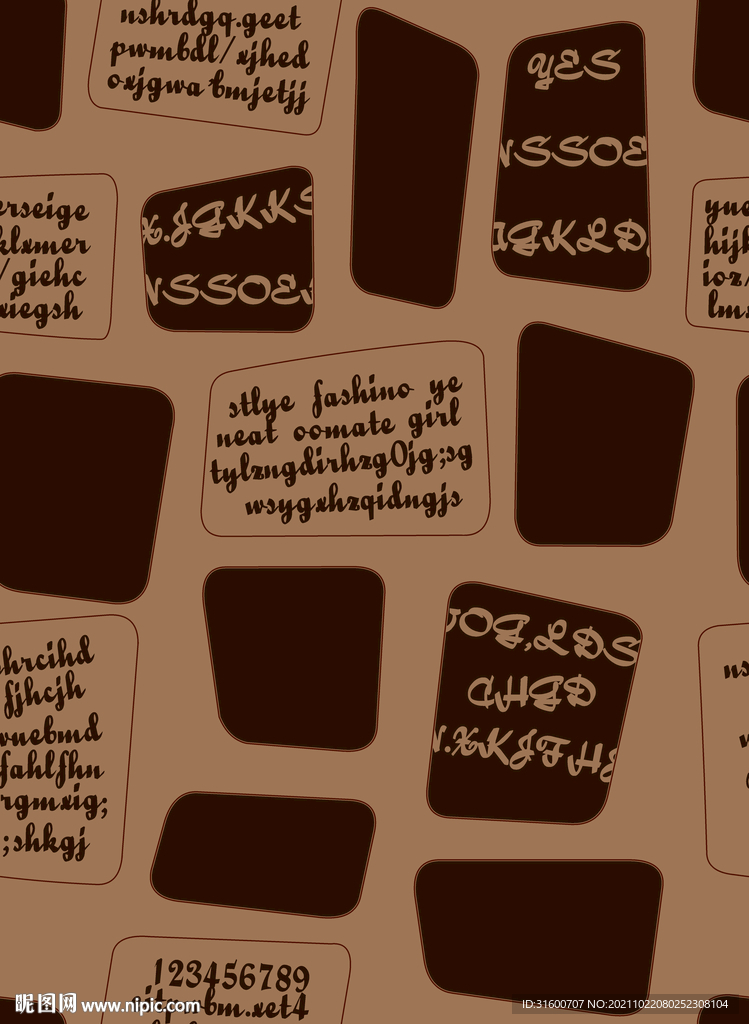 nshrdgq.geet
pwmbdl/xjhed
oxjgwa'bmjetjj
YES
SSOE
GKLD
erseige
klxmer
/giehc
xiegsh
X.JGKKS
SSOE
yue
hijk
ioz/
lms
stlye fashino ye
neat oomate girl
tylzngdirhzg0jg;sg
wsygxhzqidngjs
hrcihd
fjhcjh
wuebmd
fahlfhn
rgmxig;
;shkgj
OG,LDS
CHGD
.XKJFHG
ns
123456789
bm.xet4
昵图网 www.nipic.com
ID:31600707 NO:20211022080252308104